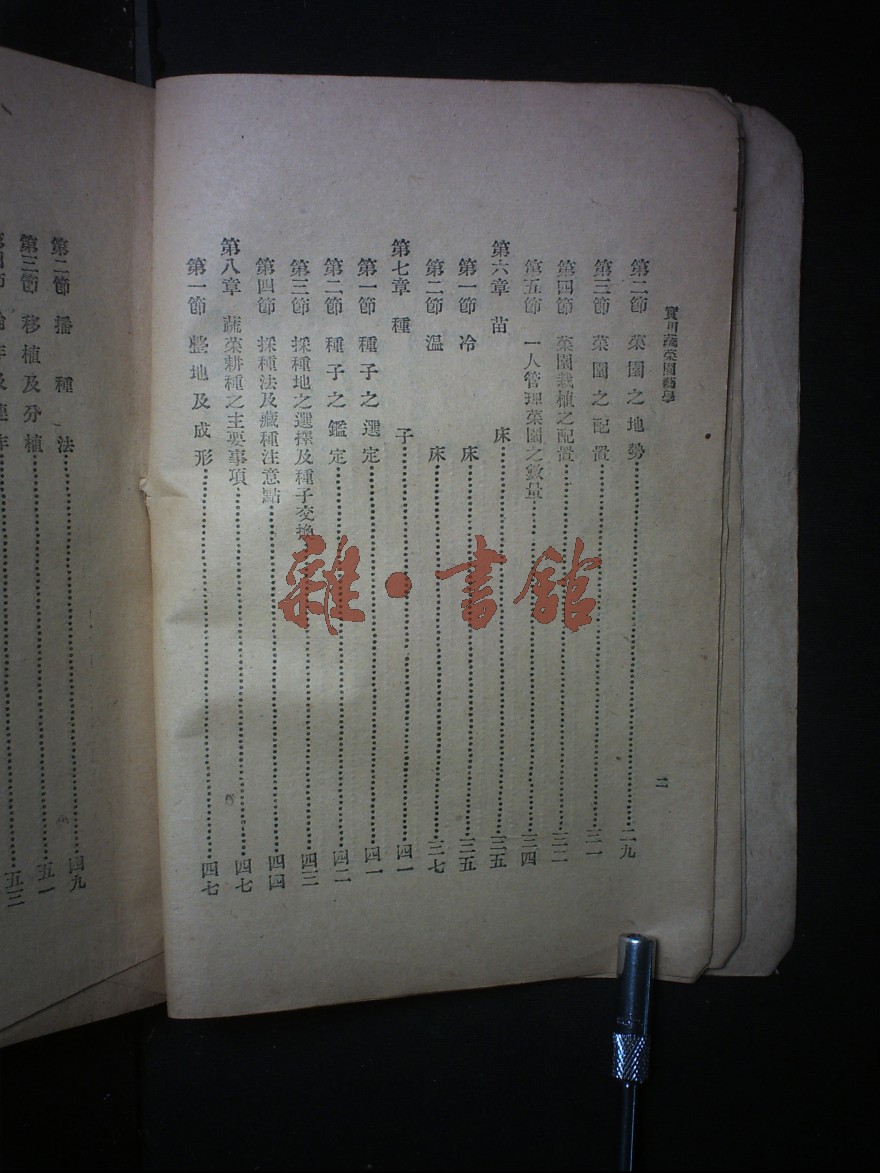 實用蔬菜園藝學
二
第二節 菜園之地勢 二九
第三節 菜園之配置 三一
第四節 菜園栽植之配置 三二
第五節 一人管理菜園之數量 三四
第六章 苗床 三五
第一節 冷床 三五
第二節 温床 三七
第七章 種子 四一
第一節 種子之選定 四一
第二節 種子之鑑定 四二
第三節 採種地之選擇及種子交換 四三
第四節 採種法及藏種注意點 四四
第八章 蔬菜耕種之主要事項 四七
第一節 整地及成形 四七
第二節 播種法 四九
第三節 移植及分植 五一
五三
雜·書館